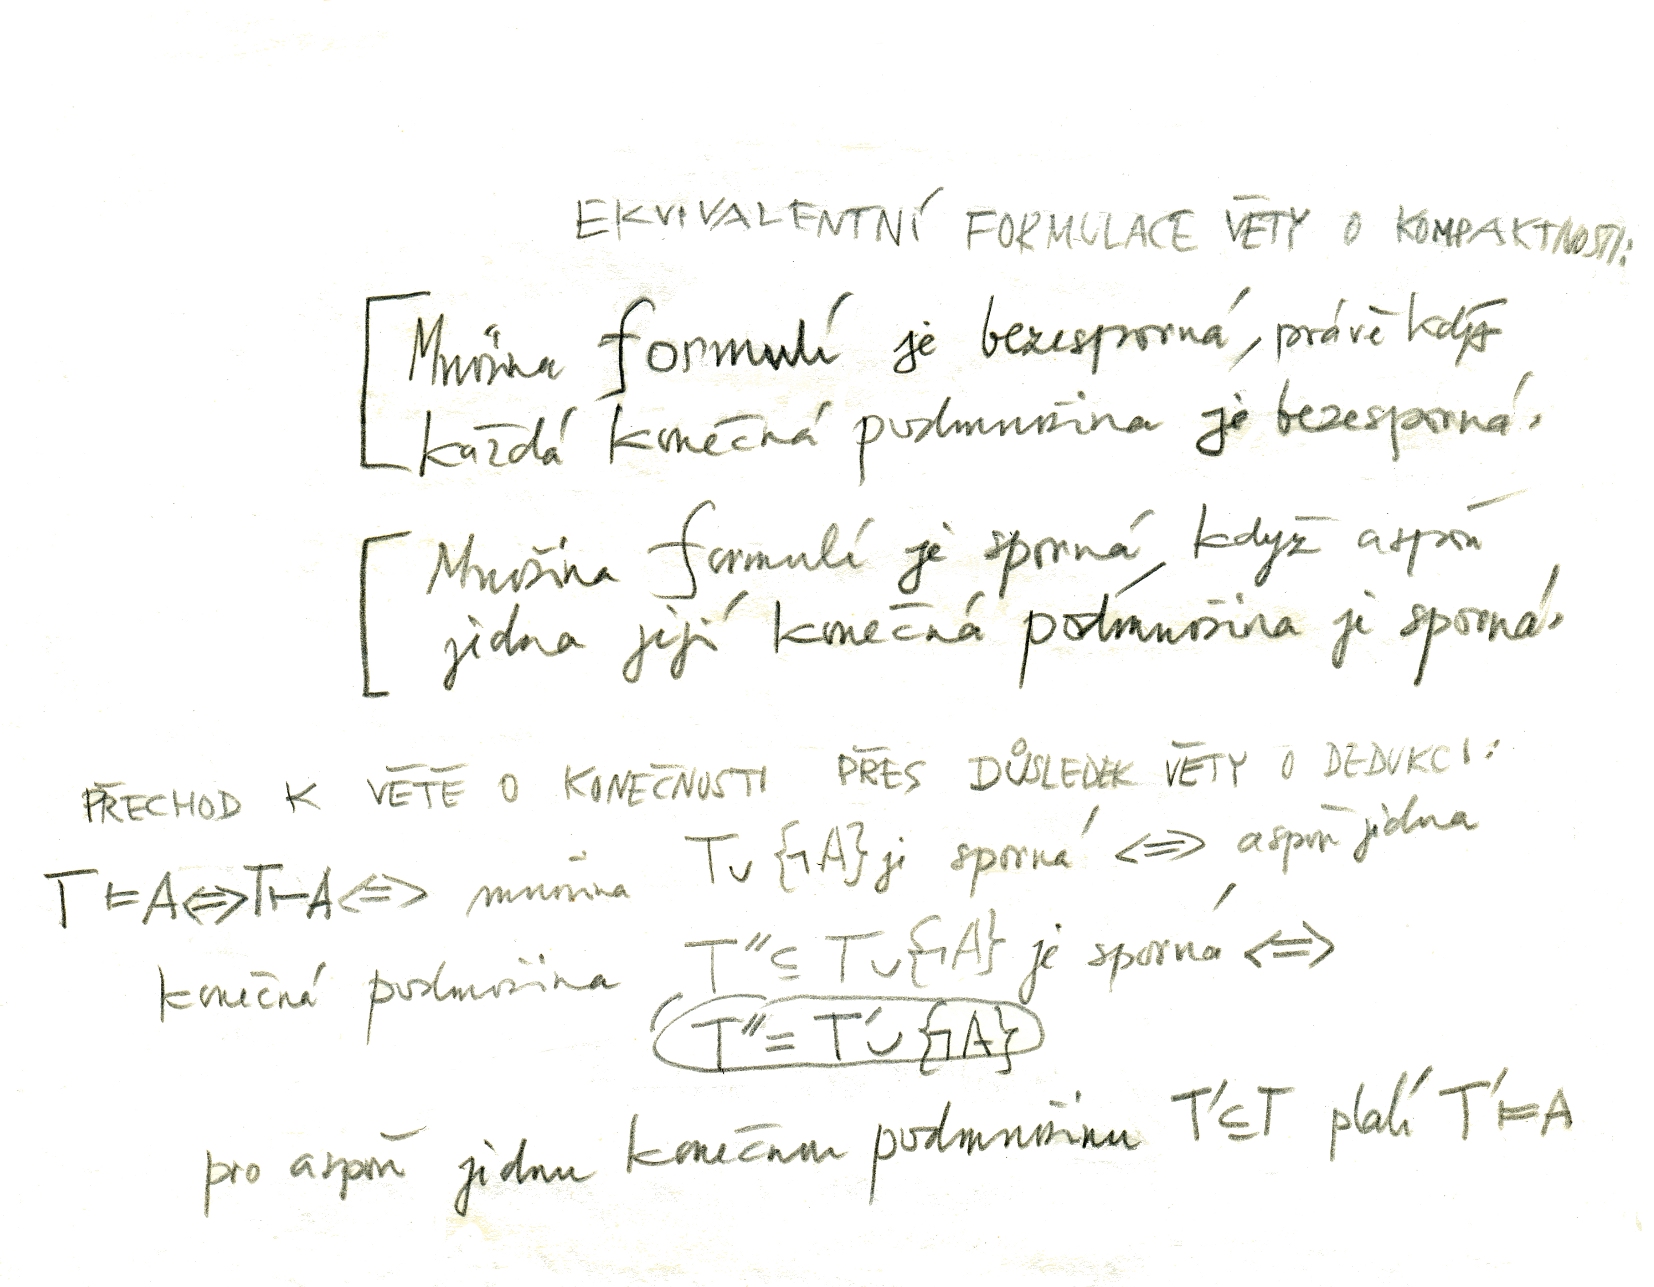 EKVIVALENTNÍ FORMULACE VĚTY O KOMPAKTNOSTI:
Množina formulí je bezesporná, právě když
každá konečná podmnožina je bezesporná.
Množina formulí je sporná, když aspoň
jedna její konečná podmnožina je sporná.
PŘECHOD K VĚTĚ O KONEČNOSTI PŘES DŮSLEDEK VĚTY O DEDUKCI:
T ⊨ A ⇔ T ⊢ A ⇔ množina T ∪ {¬A} je sporná ⇔ aspoň jedna
konečná podmnožina T″ ⊆ T ∪ {¬A} je sporná ⇔
T″ = T′ ∪ {¬A}
pro aspoň jednu konečnou podmnožinu T′ ⊆ T platí T′ ⊨ A